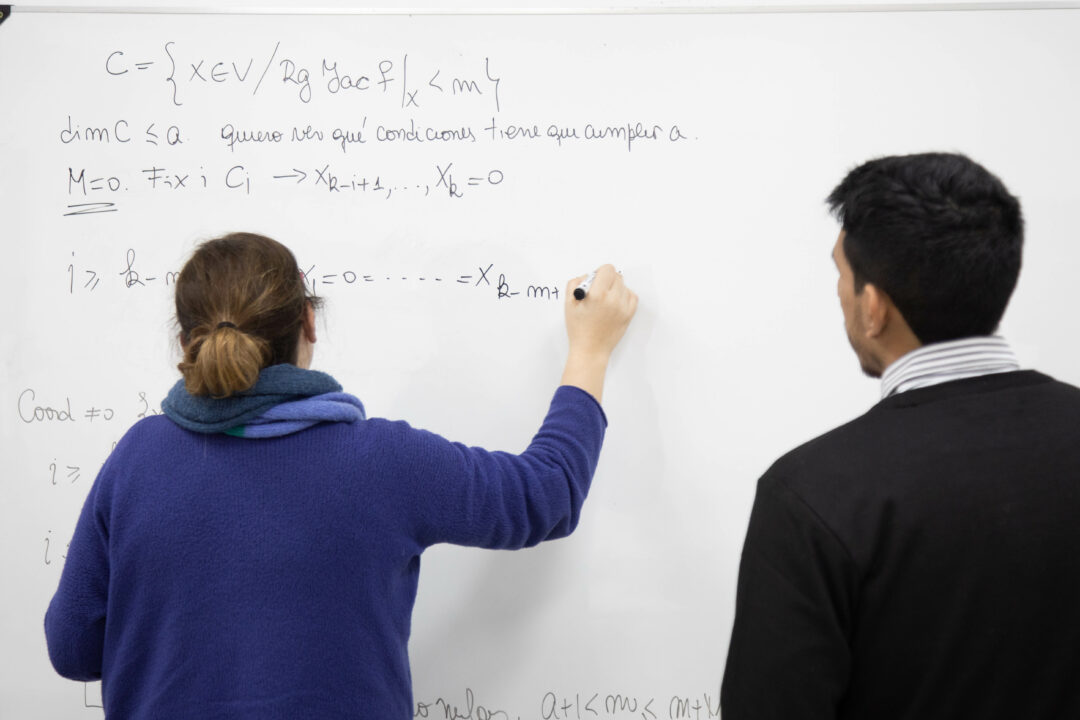 C = { X ∈ V / Rg Jac f|_X < m }
dim C ≤ a. quiero ver qué condiciones tiene que cumplir a.
M=0. Fix i C_i → X_{k-i+1}, ..., X_k = 0
i ≥ k-m X_1 = 0 = ..... = X_{k-m+
Cond ≠ 0
i ≥
i
a+1 < m